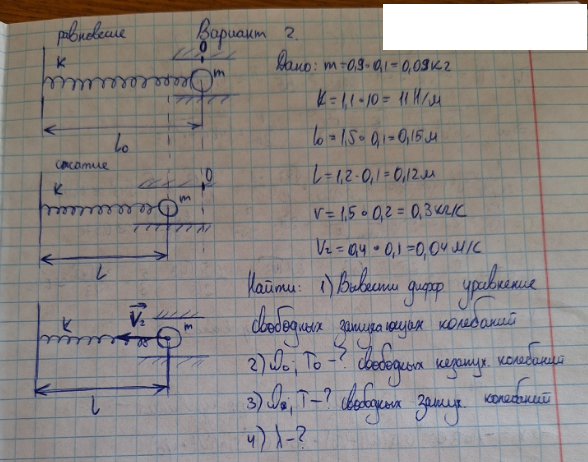 равновесие Вариант 2.
O
K
m
Дано: m=0,9·0,1=0,09кг
K=1,1·10=11Н/м
l₀
l₀=1,5·0,1=0,15м
сжатие
O
K
m
L=1,2·0,1=0,12м
r=1,5·0,2=0,3кг/с
L
V₂=0,4·0,1=0,04м/с
Найти: 1) Вывести дифф уравнение
V₂
K
m
свободных затухающих колебаний
2) ω₀; T₀-? свободных незатух. колебаний
L
3) ω₀; T-? свободных затух. колебаний
4) λ-?